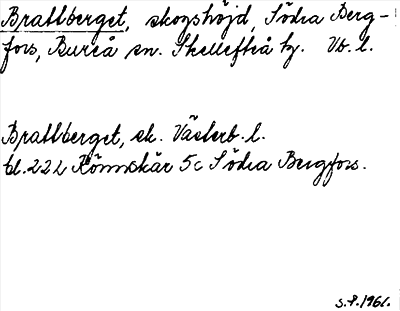 Brattberget, skogshöjd, Södra Berg-
fors, Bureå sn. Skellefteå tg. Vb. l.
Brattberget, sk. Västerb. l.
bl. 222 Rönnskär 5c Södra Bergfors.
s. f. 1961.